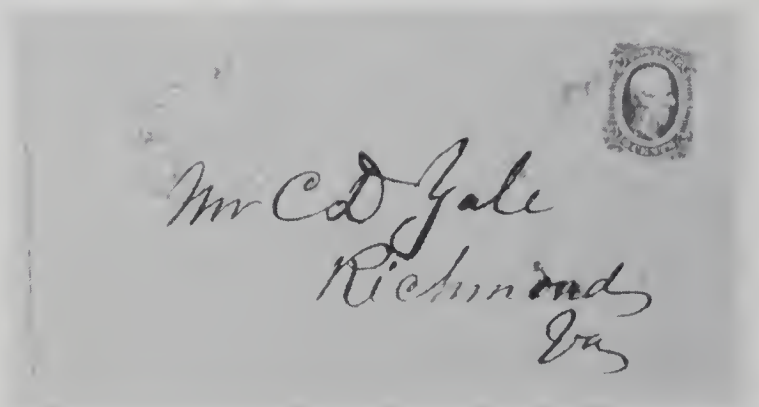 Mr C D Yale
Richmond
Va